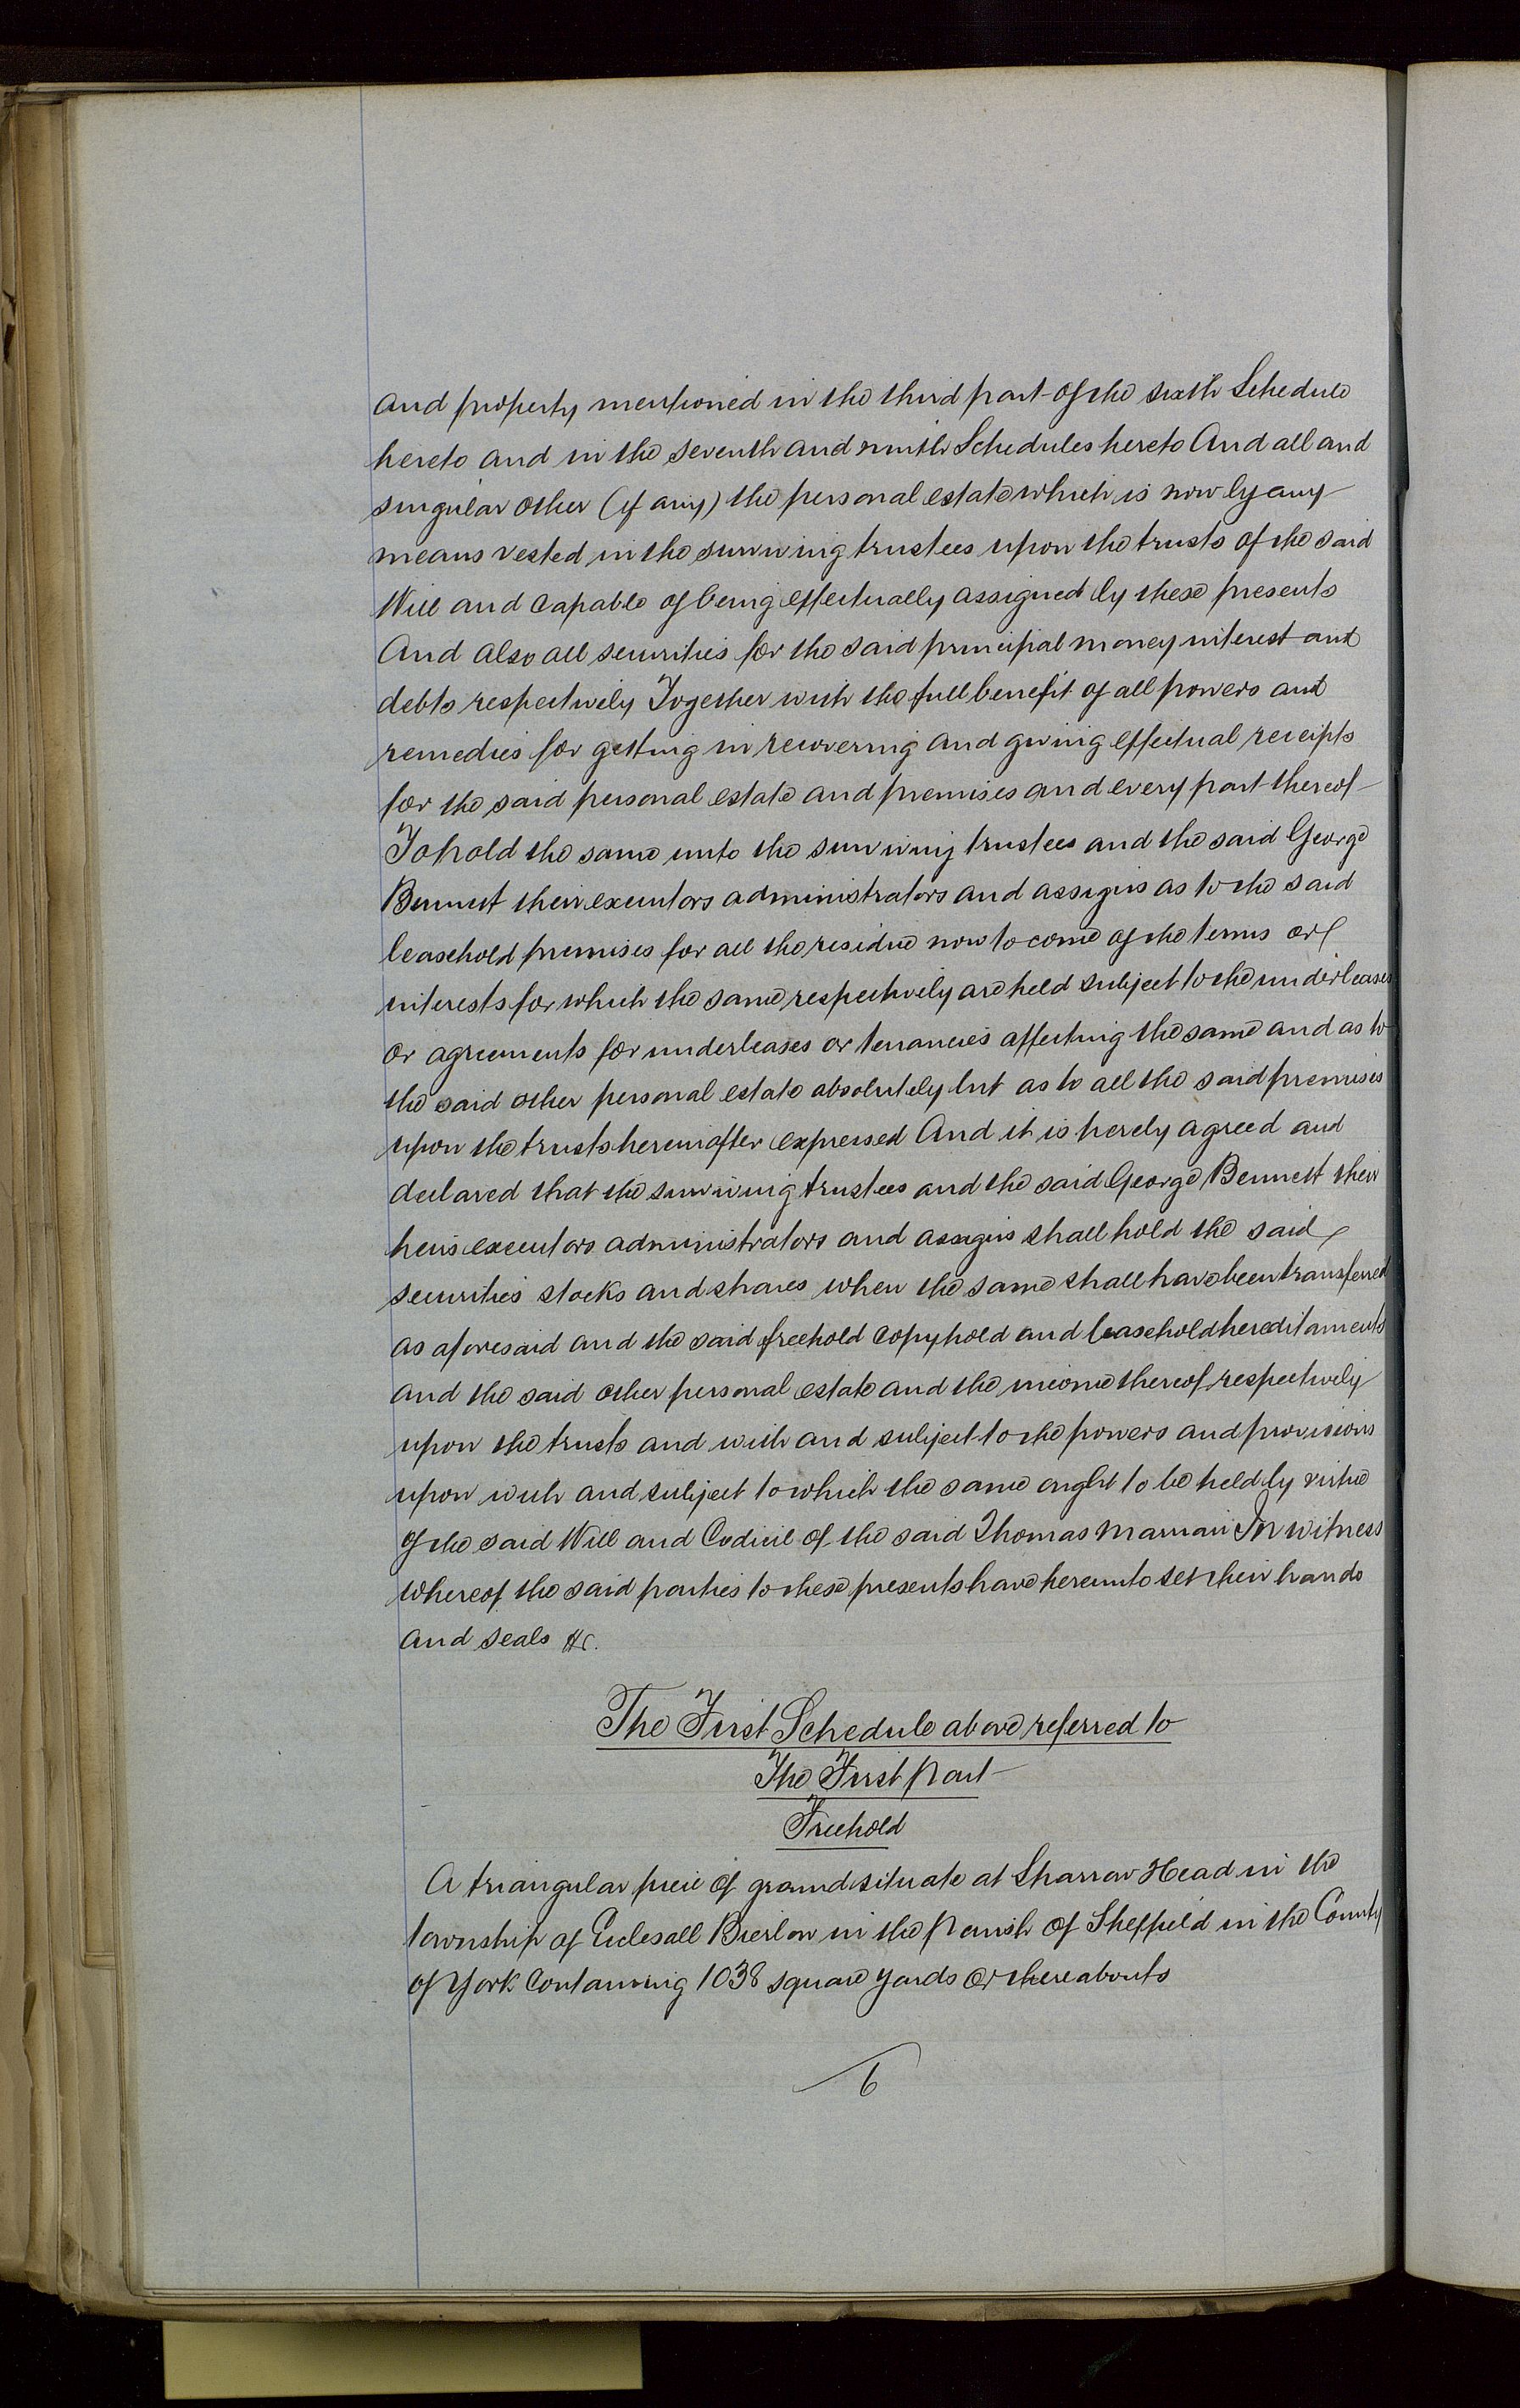 and property mentioned in the third part of the sixth Schedule
hereto and in the seventh and ninth Schedules hereto And all and
singular other (if any) the personal estate which is now by any
means vested in the surviving trustees upon the trusts of the said
Will and capable of being effectually assigned by these presents
And also all securities for the said principal money interest and
debts respectively Together with the full benefit of all powers and
remedies for getting in recovering and giving effectual receipts
for the said personal estate and premises and every part thereof
To hold the same unto the surviving trustees and the said George
Bennett their executors administrators and assigns as to the said
leasehold premises for all the residue now to come of the terms or
interests for which the same respectively are held subject to the underleases
or agreements for underleases or tenancies affecting the same and as to
the said other personal estate absolutely but as to all the said premises
upon the trusts hereinafter expressed And it is hereby agreed and
declared that the surviving trustees and the said George Bennett their
heirs executors administrators and assigns shall hold the said
securities stocks and shares when the same shall have been transferred
as aforesaid and the said freehold copyhold and leasehold hereditaments
and the said other personal estate and the income thereof respectively
upon the trusts and with and subject to the powers and provisions
upon with and subject to which the same ought to be held by virtue
of the said Will and Codicil of the said Thomas Marrian In witness
whereof the said parties to these presents have hereunto set their hands
and seals &c.
The First Schedule above referred to
The First part
Freehold
A triangular piece of ground situate at Sharrow Head in the
township of Ecclesall Bierlow in the parish of Sheffield in the County
of York Containing 1038 square yards or thereabouts
6